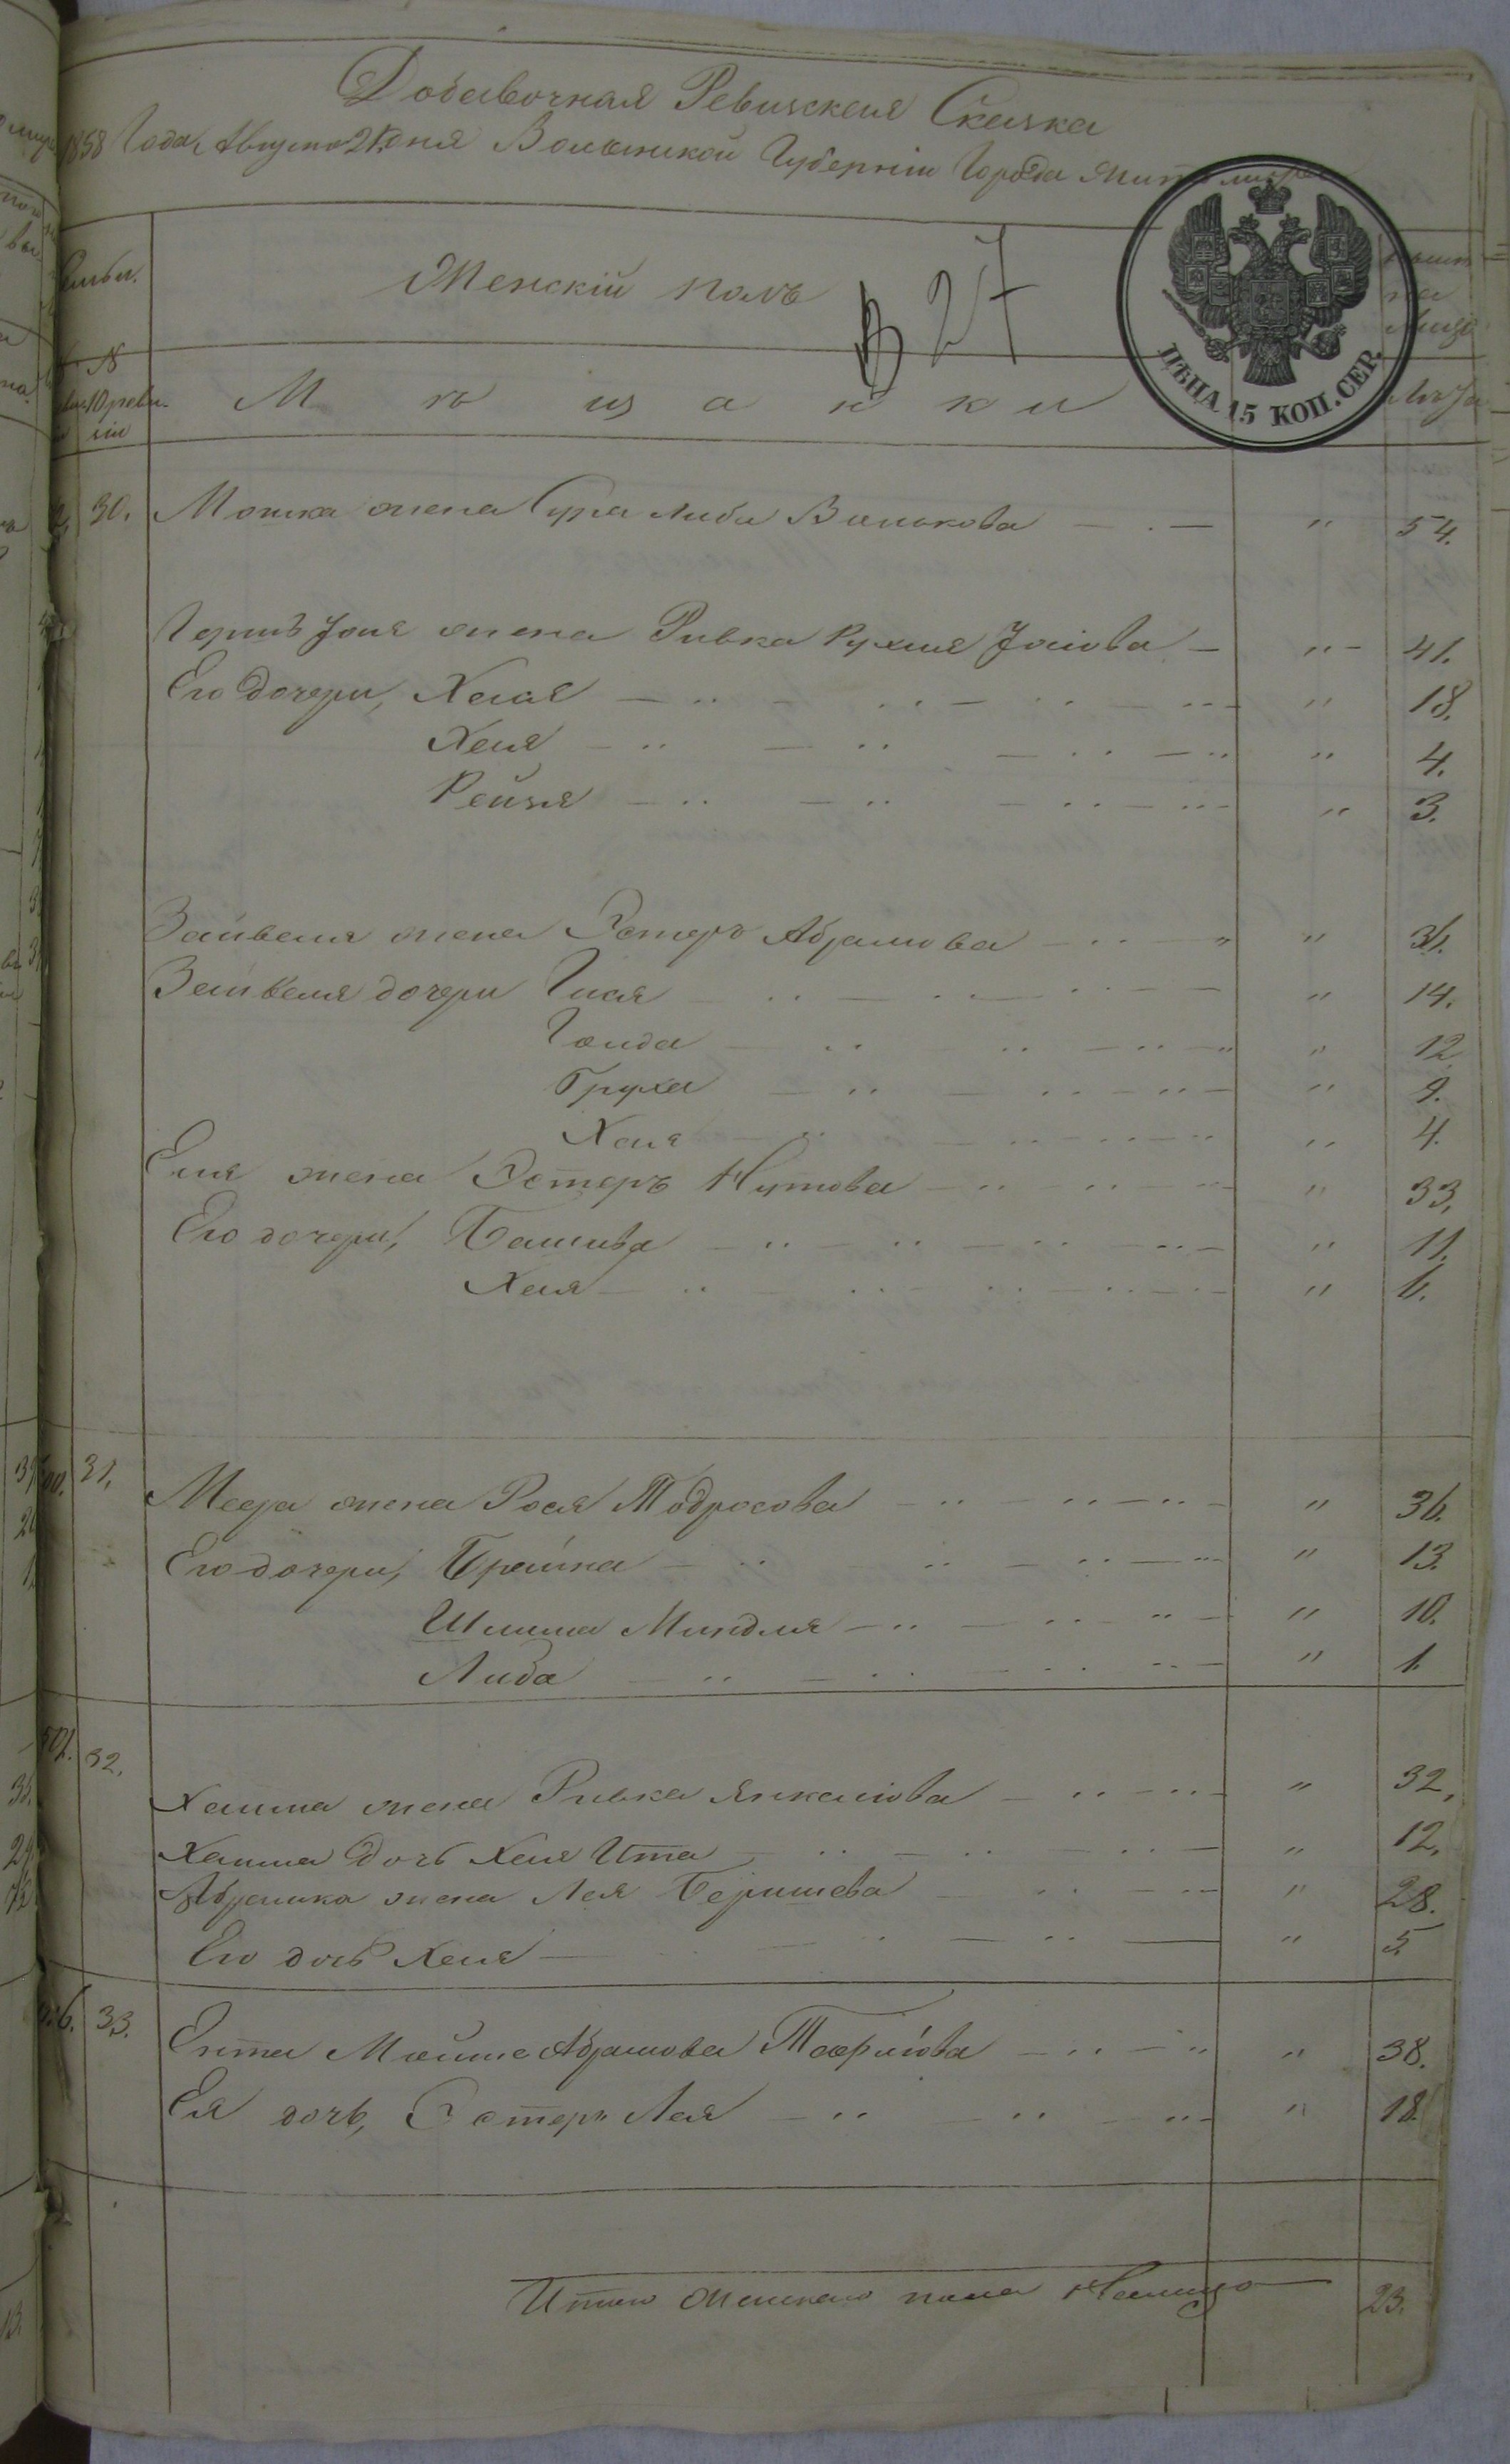 Добавочная Ревизская Сказка
1858 Года Августа 21 дня Волынской Губерніи Города Житомира
Женскій полъ
В 27
на
Лицо
ЦѢНА 15 КОП. СЕР.
№
10 реви-
зіи
Мѣщанки
Лѣта
30. Мошка жена Сура Либа Волькова — " 54.
Герша жена Ривка Рухля — " 41.
Его дочери, Хася " 18.
Хая " 4.
Рейзя " 3.
Зайвеля жена Эстеръ Абрамова "
Зайвеля дочери Гися " 14.
Голда " 12
Бруха " 9.
Хая " 4.
Еля жена Эстеръ Нутова " 33.
Его дочери, Башива " 11.
Хая " 6.
31. Меера жена Рося Тодросова " 36.
Его дочери, Брайна " 13.
Шлима Миндля " 10.
Либа " 1.
32.
Хаима жена Ривка Янкелiова " 32.
Хаима дочь Хая Ита " 12.
Абрамка жена Лея Беришева " 28.
Его дочь Хая " 5.
33. Ента Мойше Абрамова " 38.
Ея дочь, Эстеръ Лея " 18.
Итого женскаго пола на лицо 23.